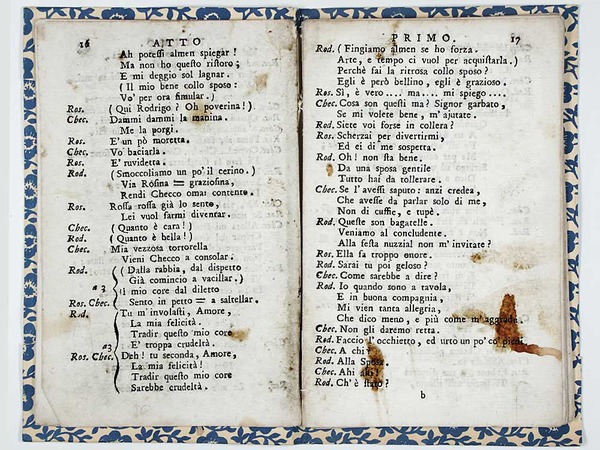 16 ATTO
Ah potessi almen spiegar!
Ma non ho questo ristoro;
E mi deggio sol lagnar.
(Il mio bene collo sposo:
Vo' per ora simular.)
Ros. (Qui Rodrigo? Oh poverina!)
Chec. Dammi dammi la manina.
Me la porgi.
Ros. E' un pò moretta.
Chec. Vo' baciarla.
Ros. E' ruvidetta.
Rod. (Smoccoliamo un po' il cerino.)
Via Rosina = graziosina,
Rendi Checco omai contento.
Ros. Rossa rossa già lo sento,
Lei vuol farmi diventar.
Chec. (Quanto è cara!)
Rod. (Quanto è bella!)
Chec. Mia vezzosa tortorella
Vieni Checco a consolar.
Rod. (Dalla rabbia, dal dispetto
Già comincio a vacillar.)
a 3 il mio core dal diletto
Ros. Chec. Sento in petto = a saltellar.
Rod. Tu m'involasti, Amore,
La mia felicità.
Tradir questo mio core
E' troppa crudeltà.
a3
Ros. Chec. Deh! tu seconda, Amore,
La mia felicità!
Tradir questo mio core
Sarebbe crudeltà.
PRIMO. 17
Rod. (Fingiamo almen se ho forza.
Arte, e tempo ci vuol per acquistarla.)
Perchè fai la ritrosa collo sposo?
Egli è però bellino, egli è grazioso.
Ros. Sì, è vero.... ma.... mi spiego....
Chec. Cosa son questi ma? Signor garbato,
Se mi volete bene, m'ajutate.
Rod. Siete voi forse in collera?
Ros. Scherzai per divertirmi,
Ed ei di me sospetta.
Rod. Oh! non sta bene.
Da una sposa gentile
Tutto hai da tollerare.
Chec. Se l'avessi saputo: anzi credea,
Che avesse da parlar solo di me,
Non di cuffie, e tupè.
Rod. Queste son bagatelle.
Veniamo al concludente.
Alla festa nuzzial non m'invitate?
Ros. Ella fa troppo onore.
Rod. Sarai tu poi geloso?
Chec. Come sarebbe a dire?
Rod. Io quando sono a tavola,
E in buona compagnia,
Mi vien tanta allegria,
Che dico meno, e più come m'aggrada.
Chec. Non gli daremo retta.
Rod. Faccio l'occhietto, ed urto un po' co' piedi.
Chec. A chi?
Rod. Alla Sposa.
Chec. Ahi ahi!
Rod. Ch' è stato?
b